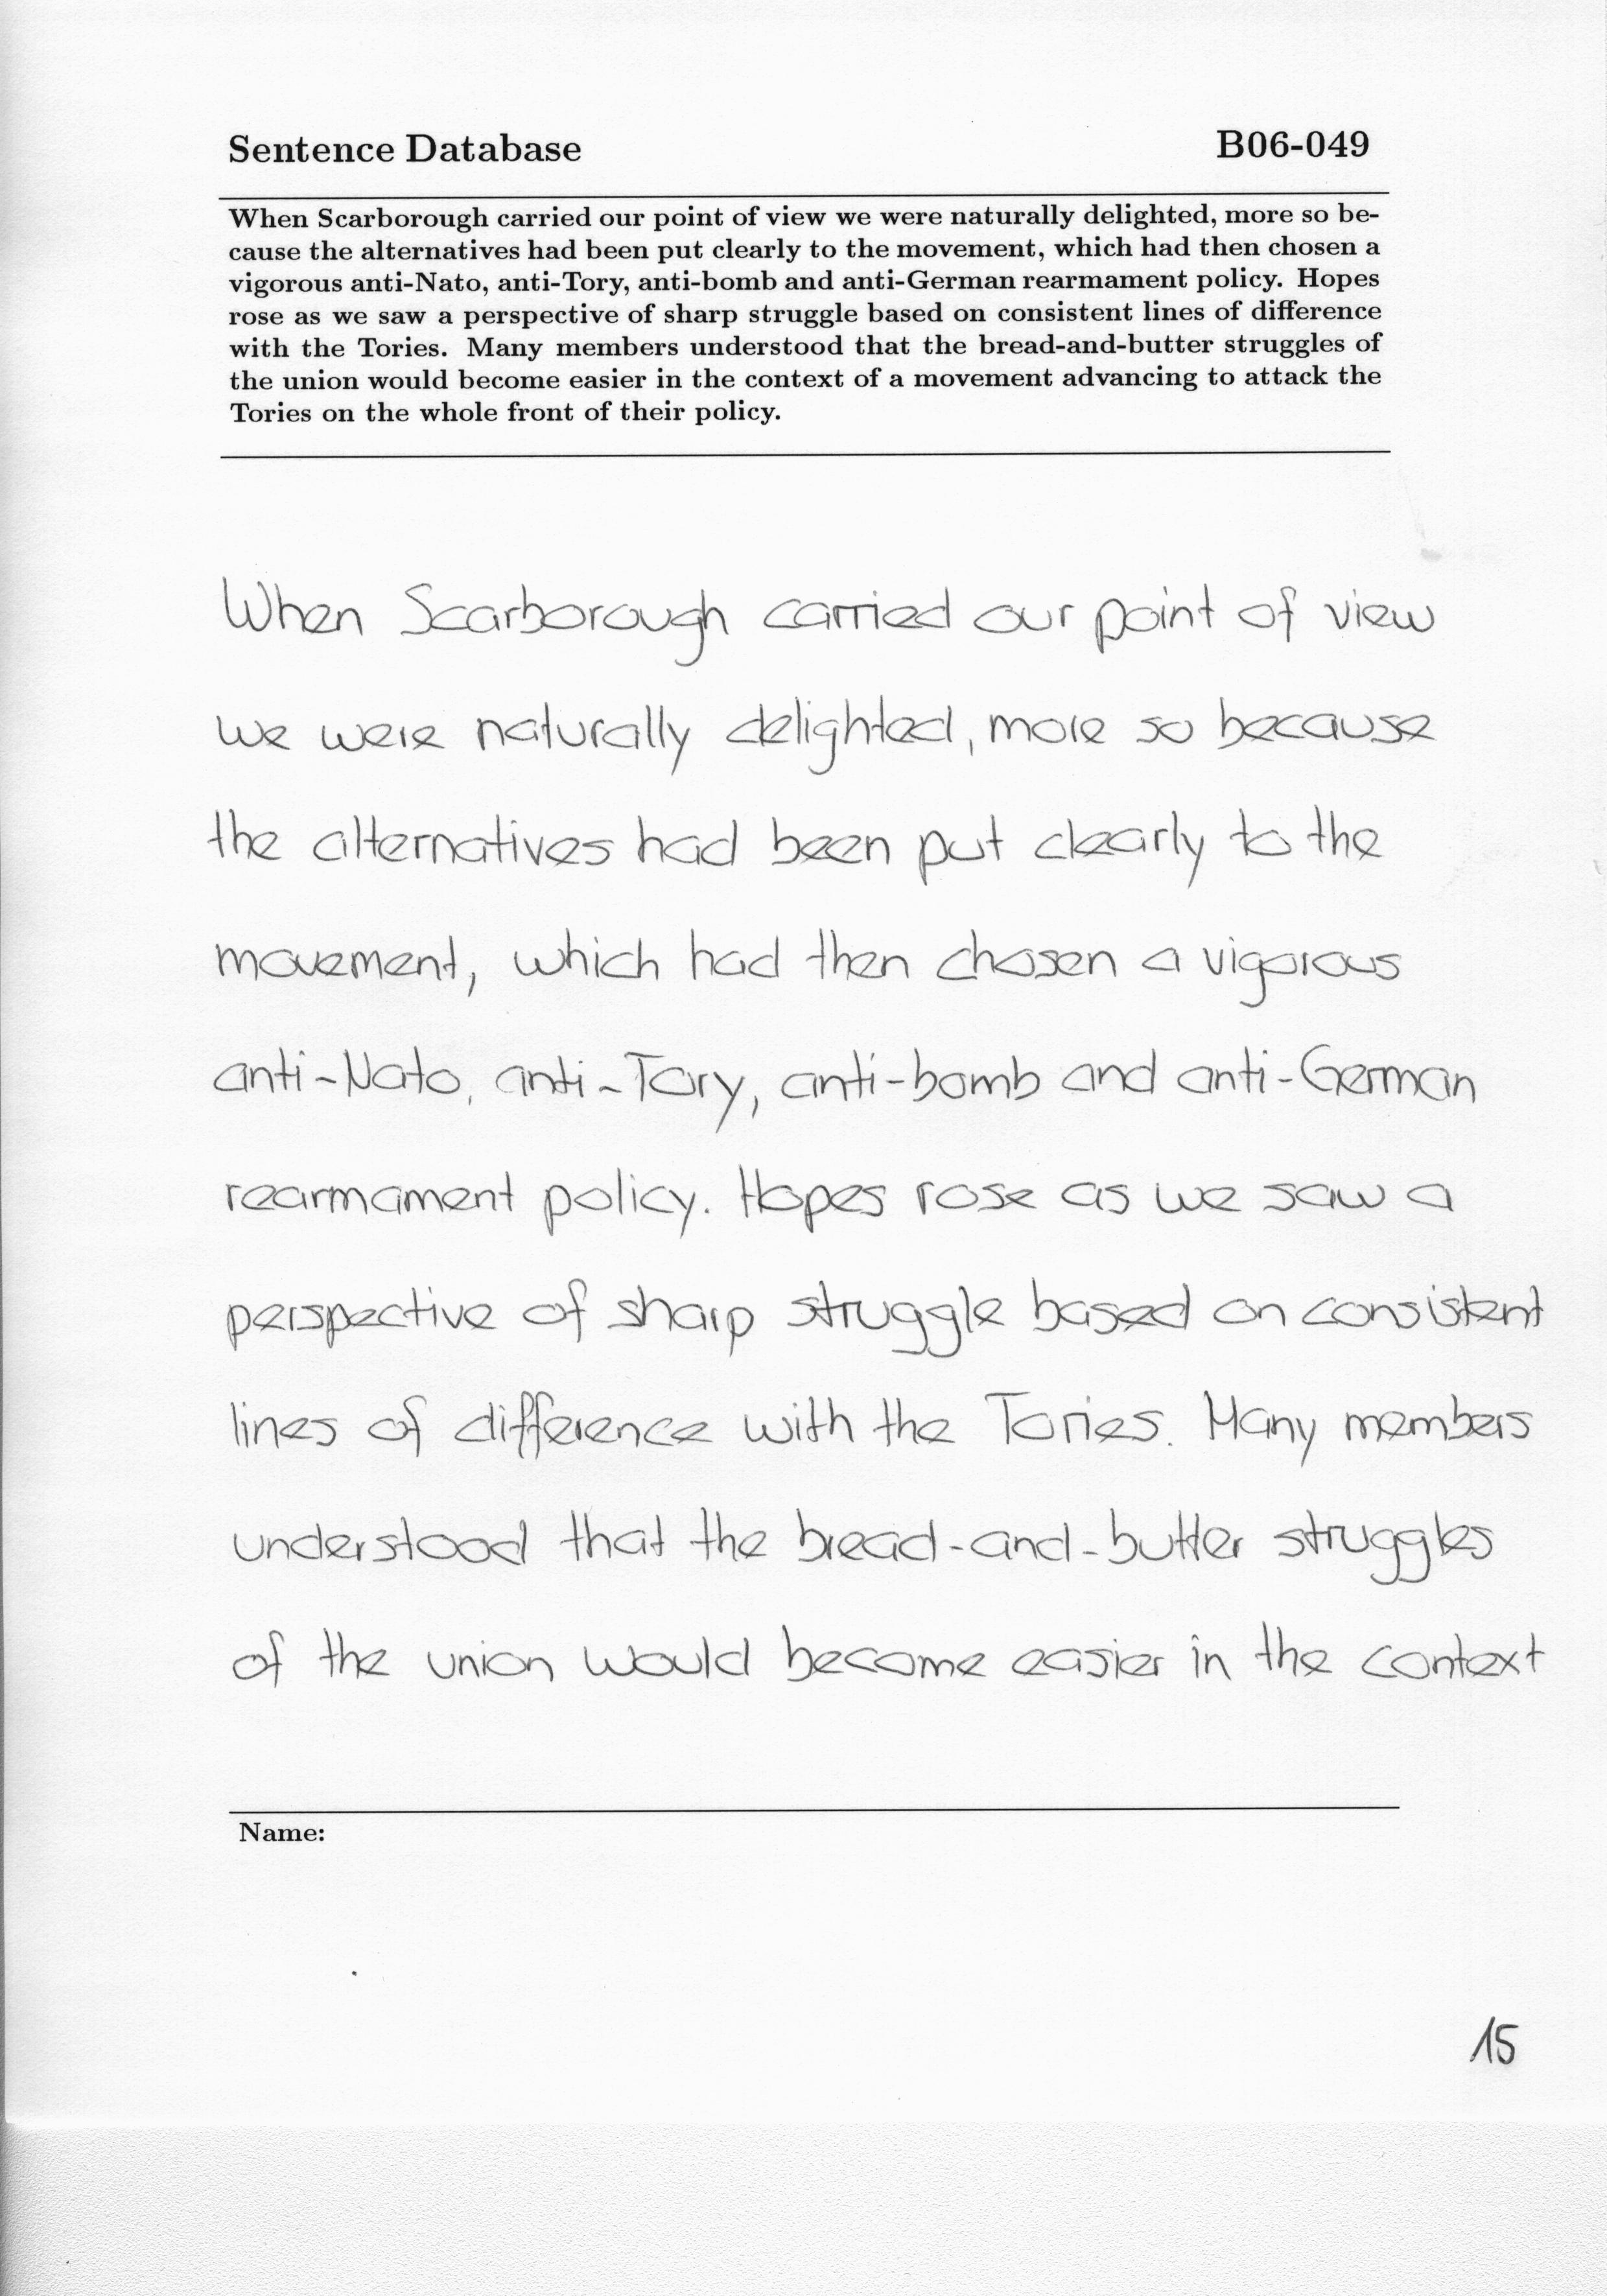 Sentence Database B06-049
When Scarborough carried our point of view we were naturally delighted, more so be-
cause the alternatives had been put clearly to the movement, which had then chosen a
vigorous anti-Nato, anti-Tory, anti-bomb and anti-German rearmament policy. Hopes
rose as we saw a perspective of sharp struggle based on consistent lines of difference
with the Tories. Many members understood that the bread-and-butter struggles of
the union would become easier in the context of a movement advancing to attack the
Tories on the whole front of their policy.
When Scarborough carried our point of view
we were naturally delighted, more so because
the alternatives had been put clearly to the
movement, which had then chosen a vigorous
anti-Nato, anti-Tory, anti-bomb and anti-German
rearmament policy. Hopes rose as we saw a
perspective of sharp struggle based on consistent
lines of difference with the Tories. Many members
understood that the bread-and-butter struggles
of the union would become easier in the context
Name:
15